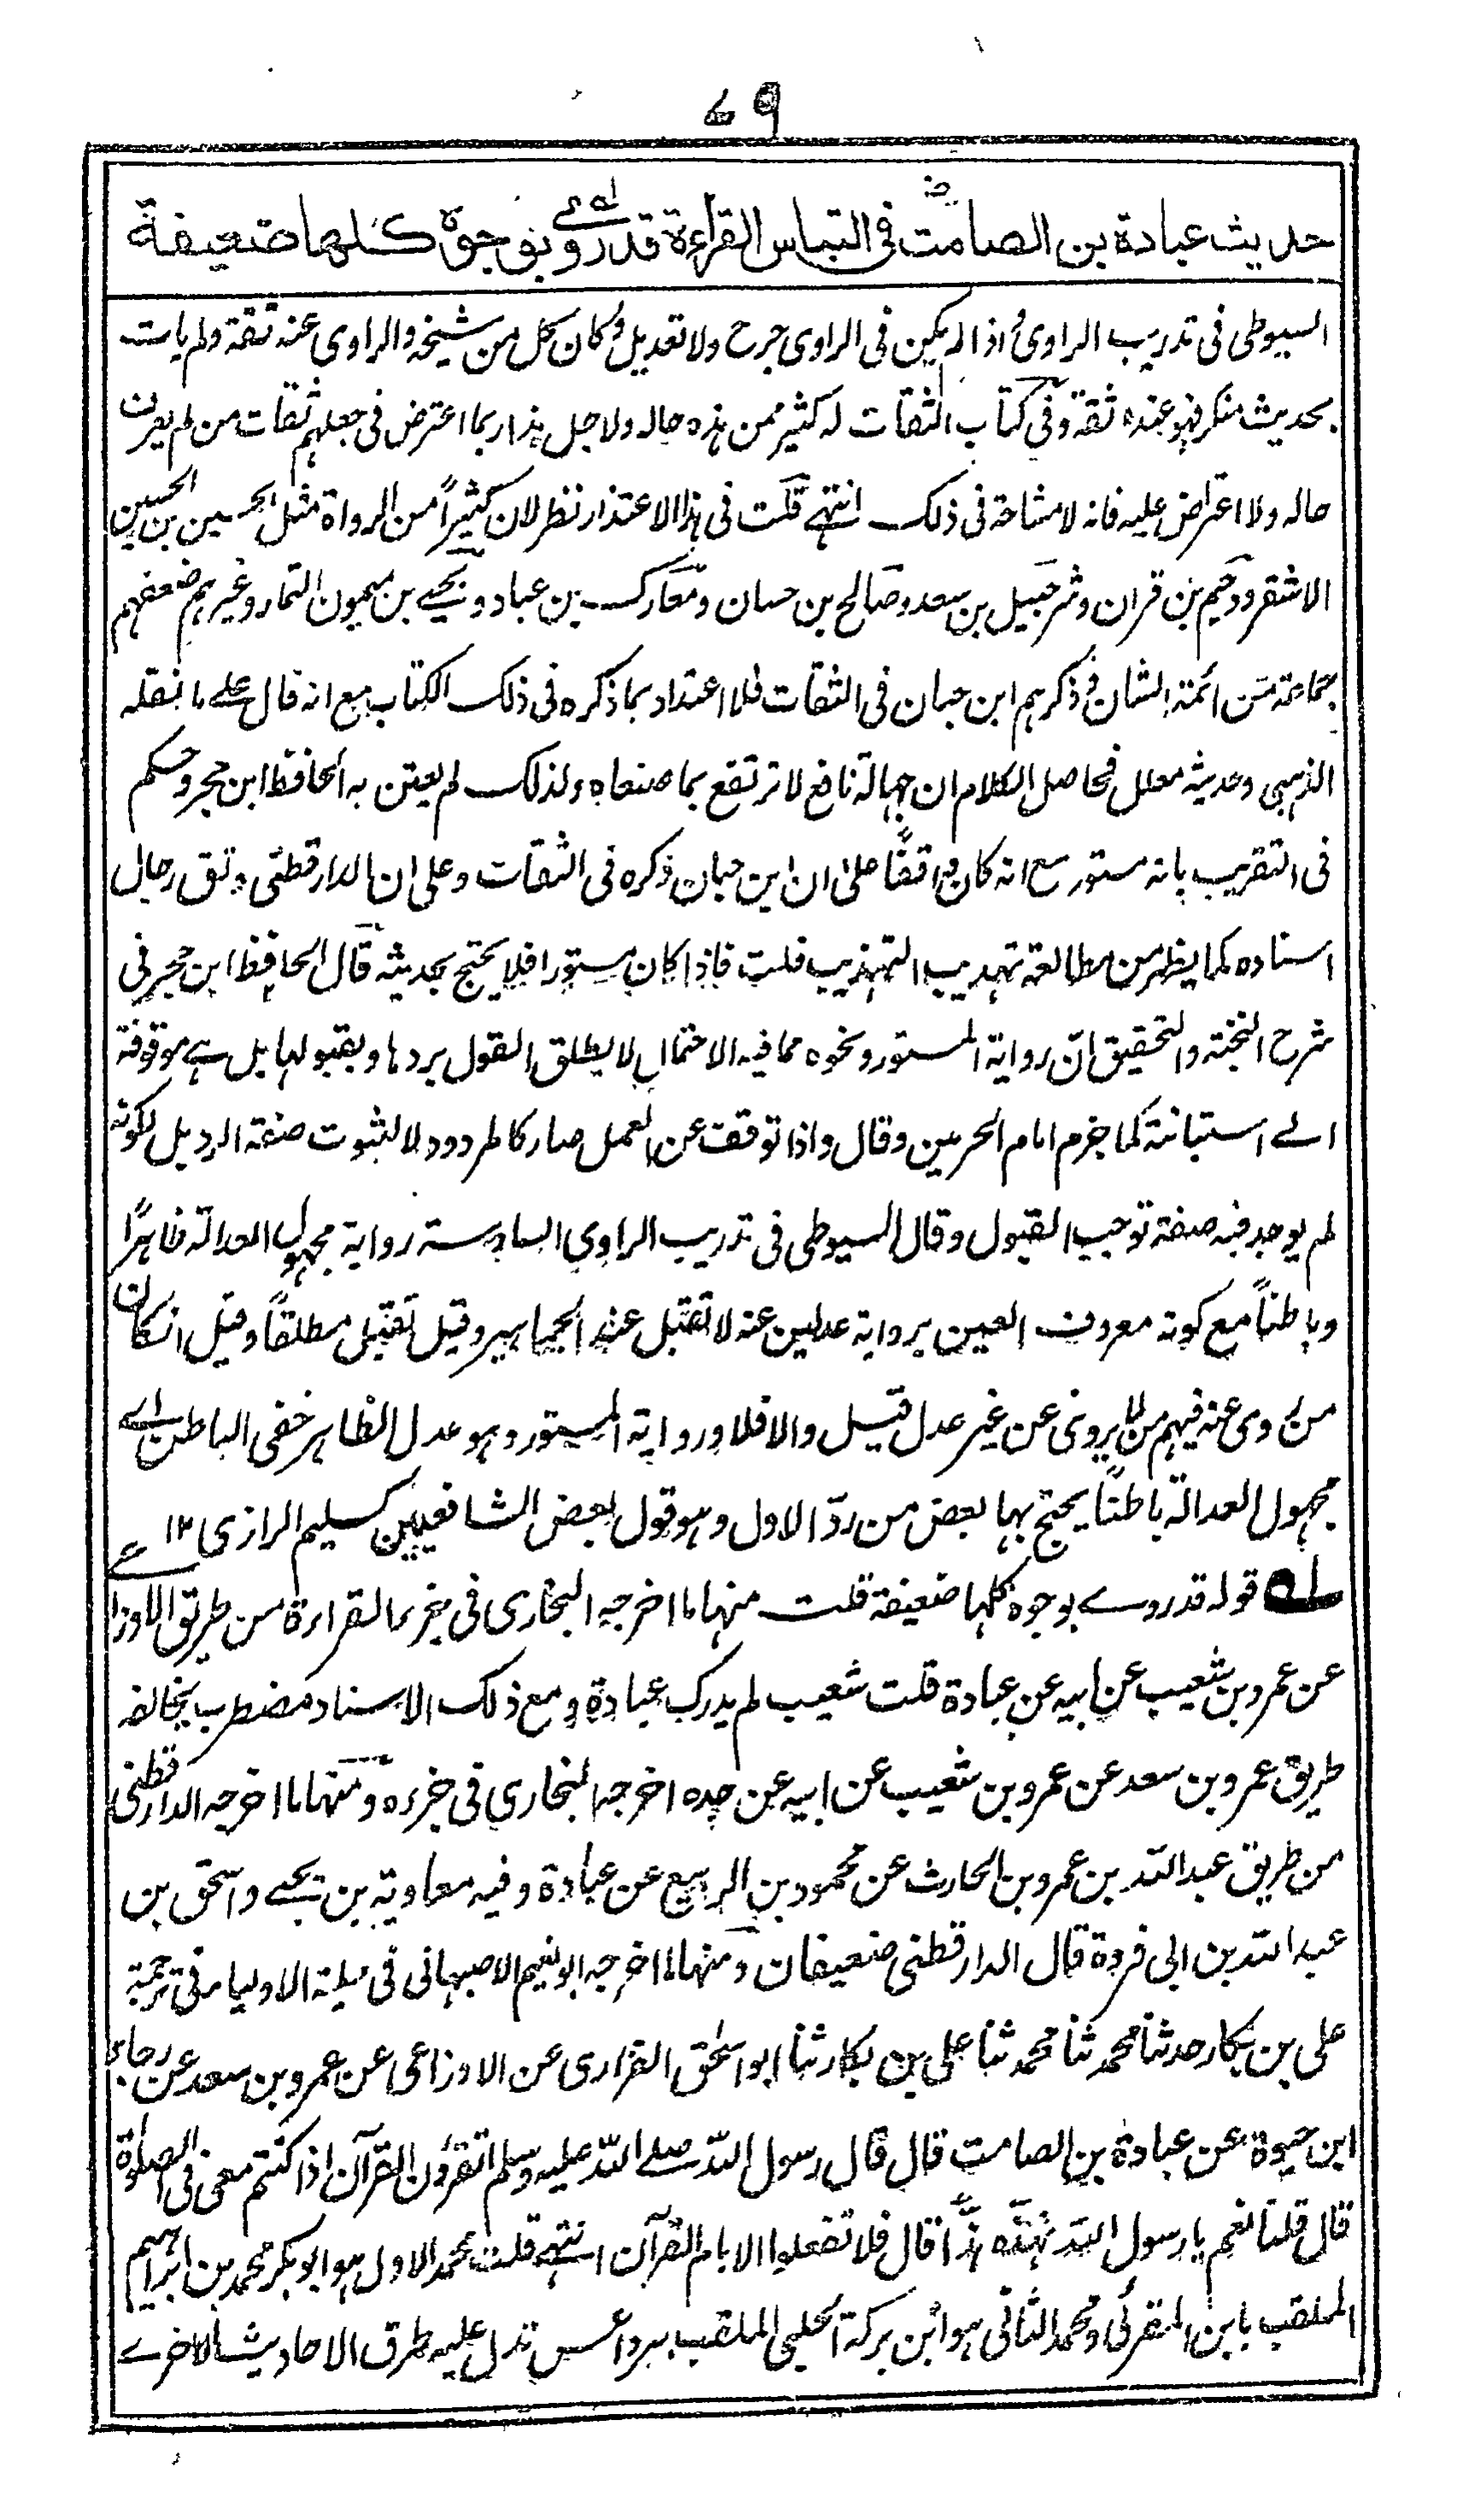 ٧٩
حديث عبادة بن الصامت رض فى التباس القراءة قد روى بوجوه كلها ضعيفة
السيوطى فى تدريب الراوى واذا لم يكن فى الراوى جرح ولا تعديل وكان كل من شيخه والراوى عنه ثقة ولم يات
بحديث منكر فهو عنده ثقة وفى كتاب الثقات له كثير ممن هذه حاله ولاجل هذا ربما اعترض فى جعلهم ثقات من لم يعرف
حاله ولا اعتراض عليه فانه لا مشاحة فى ذلك انتهى قلت فى هذا الاعتذار نظر لان كثيراً من الرواة مثل الحسين بن الحسين
الاشقر ودهيم بن قران وشرحبيل بن سعد وصالح بن حسان ومعارك بن عباد ويحيى بن ميمون التمار وغيرهم ضعفهم
جماعة من ائمة الشان وذكرهم ابن حبان فى الثقات فلا اعتداد بما ذكره فى ذلك الكتاب مع انه قال على ما نقله
الذهبى وحديثه معلل فحاصل الكلام ان جهالة نافع لا ترتفع بما صنعاه ولذلك لم يعتن به الحافظ ابن حجر وحكم
فى التقريب بانه مستور مع انه كان واقفًا على ان ابن حبان ذكره فى الثقات وعلى ان الدارقطنى وثق رجال
اسناده كما يظهر من مطالعة تهذيب التهذيب قلت فاذا كان مستورا فلا يحتج بحديثه قال الحافظ ابن حجر فى
شرح النخبة والتحقيق انّ رواية المستور ونحوه مما فيه الاحتمال لا يطلق القول بردها وبقبولها بل هى موقوفة
الى استبانة كما جزم امام الحرمين وقال واذا توقف عن العمل صار كالمردود لا لثبوت صفة الرد بل لكونه
لم يوجد فيه صفة توجب القبول وقال السيوطى فى تدريب الراوى السادسة رواية مجهول العدالة ظاهرًا
وباطناً مع كونه معروف العين برواية عدلين عنه لا تقبل عند الجماهير وقيل تقبل مطلقاً وقيل ان كان
من روى عنه فيهم من لا يروى عن غير عدل قبل والا فلا ورواية المستور وهو عدل الظاهر خفى الباطن اى
مجهول العدالة باطناً يحتج بها بعض من ردّ الاول وهو قول بعض الشافعيين كسليم الرازى ١٢
له قوله قد روى بوجوه كلها ضعيفة قلت منها ما اخرجه البخارى فى جزء القراءة من طريق الاوزا
عن عمرو بن شعيب عن ابيه عن عبادة قلت شعيب لم يدرك عبادة ومع ذلك الاسناد مضطرب يخالفه
طريق عمرو بن سعد عن عمرو بن شعيب عن ابيه عن جده اخرجه البخارى فى جزءه ومنها ما اخرجه الدارقطنى
من طريق عبد الله بن عمرو بن الحارث عن محمود بن الربيع عن عبادة وفيه معاوية بن يحيى واسحق بن
عبد الله بن ابى فروة قال الدارقطنى ضعيفان ومنها ما اخرجه ابو نعيم الاصبهانى فى حلية الاولياء فى ترجمة
على بن بكار حدثنا محمد ثنا محمد ثنا على بن بكار ثنا ابو اسحق الفزارى عن الاوزاعى عن عمرو بن سعد عن رجاء
ابن حيوة عن عبادة بن الصامت قال قال رسول الله صلى الله عليه وسلم اتقرؤن القرآن اذا كنتم معى فى الصلوة
قال قلنا نعم يا رسول الله نهذه هذًّا قال فلا تفعلوا الا بام القرآن انتهى قلت محمد الاول هو ابو بكر محمد بن ابراهيم
الملقب بابن المقرئ ومحمد الثانى هو ابن بركة الحلبى الملقب ببرداعس تدل عليه طرق الاحاديث الاخرى